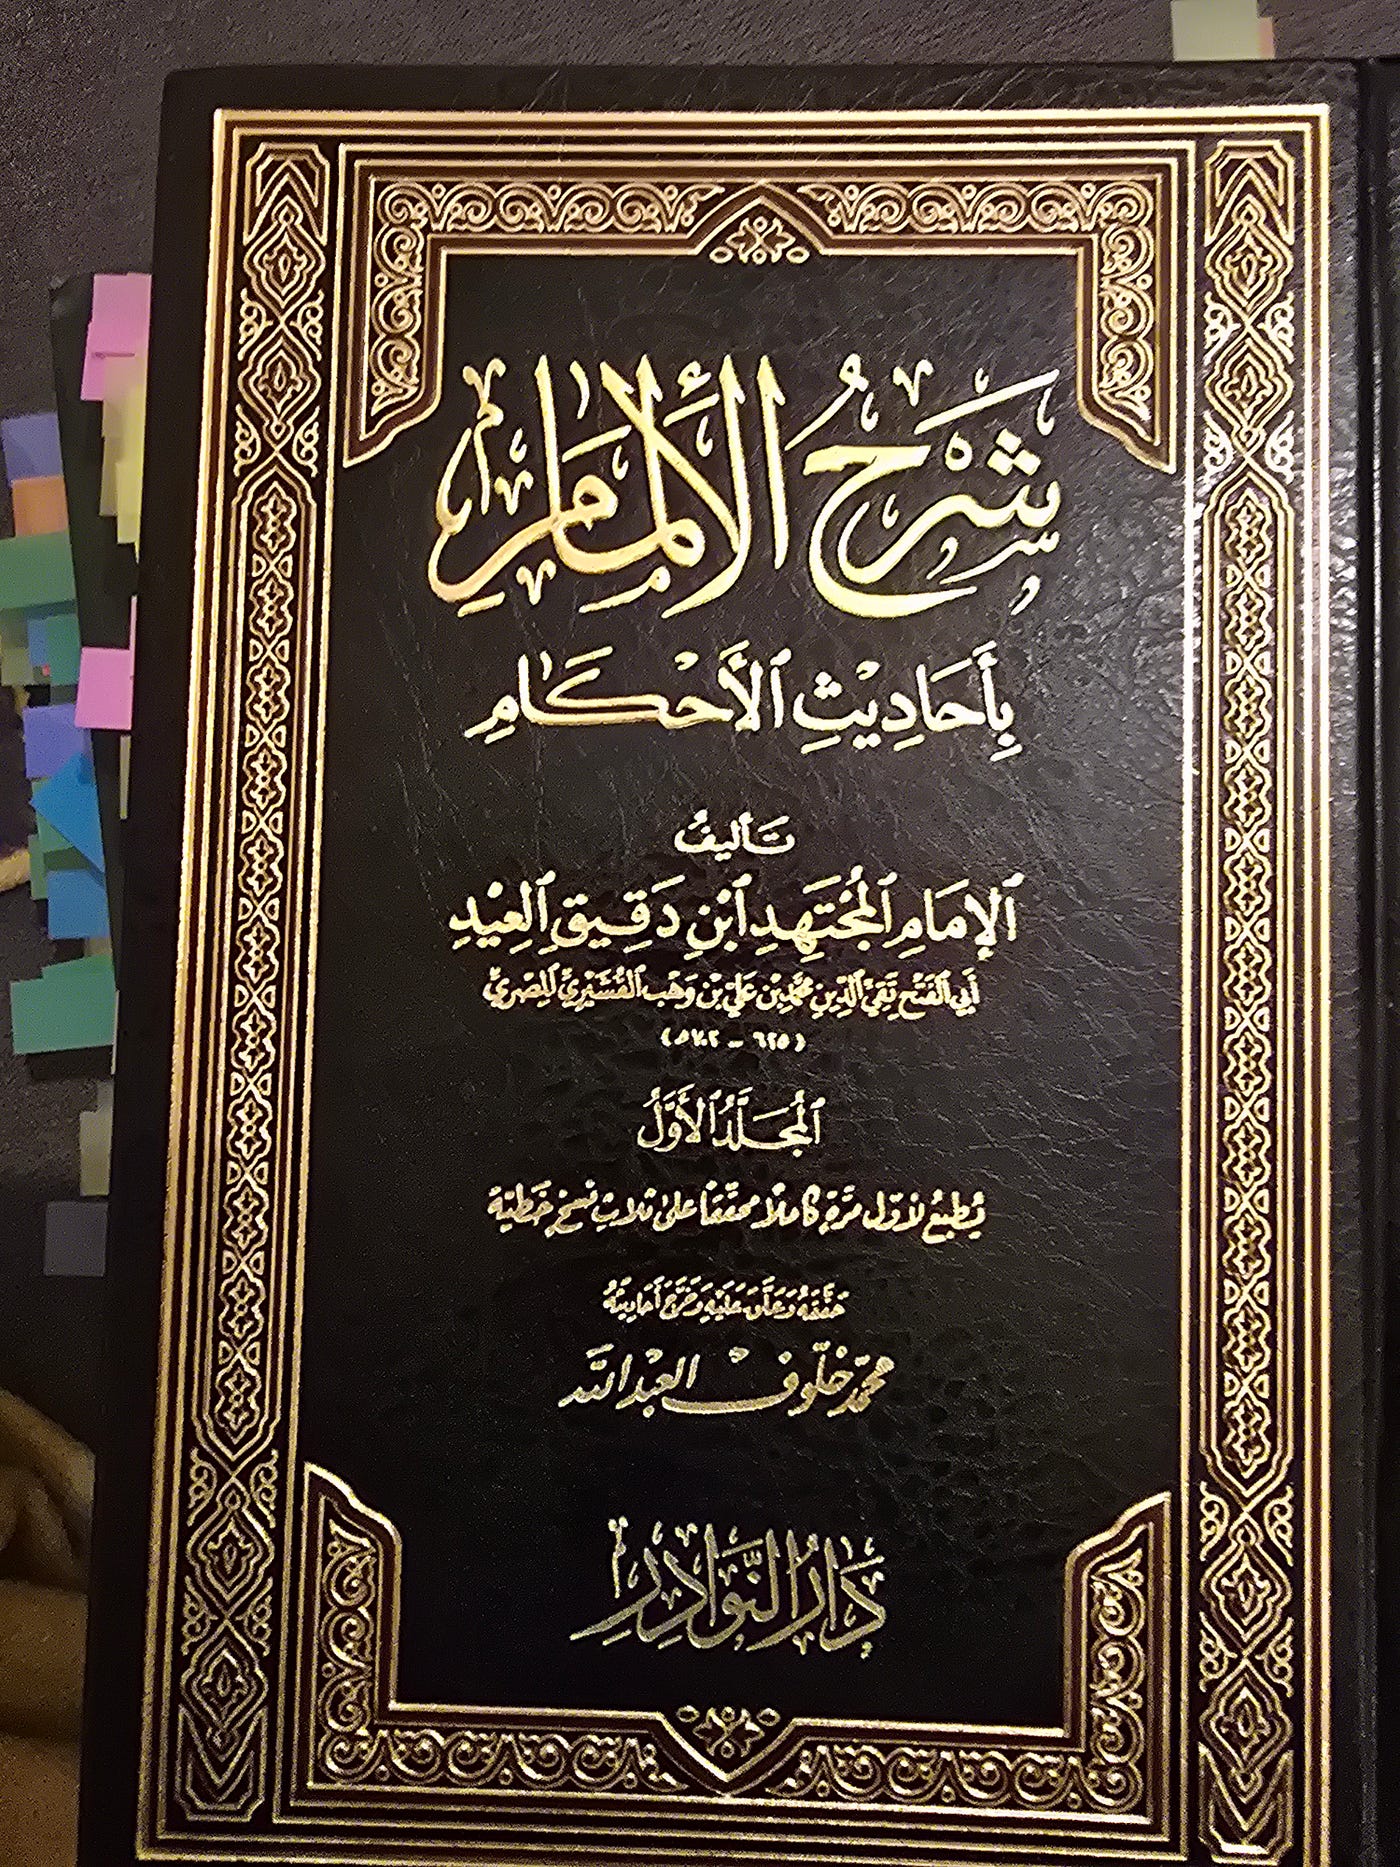 شَرْحُ الإِلْمَامِ
بِأَحَادِيْثِ الأَحْكَامِ
تَأليفُ
الإِمَامِ المُجْتَهِدِ ابْنِ دَقِيْقِ العِيْدِ
أَبي الفَتْحِ تَقِيِّ الدِّينِ مُحَمَّدِ بْنِ عَلِيِّ بْنِ وَهْبٍ القُشَيْرِيِّ المِصْرِيِّ
(٦٢٥ - ٧٠٢ هـ)
المُجَلَّدُ الأَوَّلُ
يُطبَعُ لأوّل مَرّةٍ كاملًا محقّقًا على ثلاثِ نُسَخٍ خَطّيّة
حَقَّقَهُ وَعَلَّقَ عَلَيْهِ وَخَرَّجَ أَحَادِيثَهُ
محمّد خلّوف العبد الله
دَارُ النَّوَادِرِ